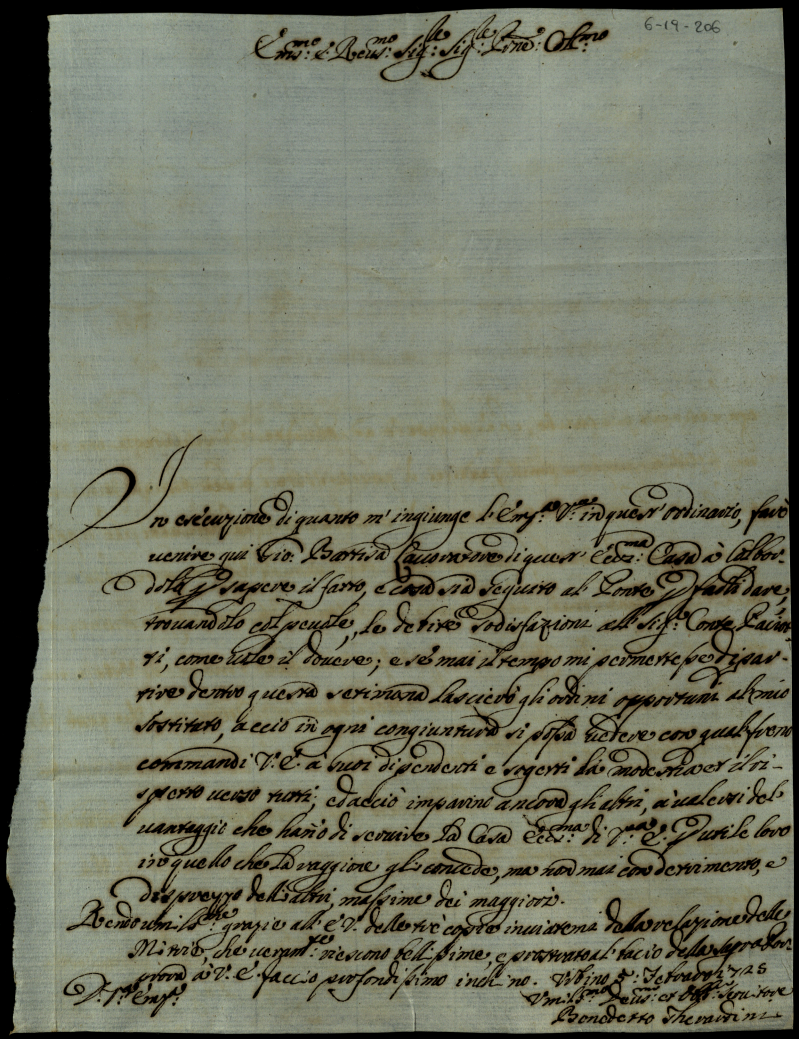 6-19-206
Em.mo e Reu.mo Sig.re Sig.re P.rone Coll.mo
In esecuzione di quanto m' ingiunge l' Em.za V.ra in quest' ordinario, farò
venire qui Gio: Battista Lavoratore di quest' Ecc.ma Casa à
sapere il fatto, e cosa sia seguito al Ponte p farli dare,
trouandolo colpeuole, le debite sodisfazioni all Sig.r Conte
ti, come uole il douere; e se mai il tempo mi permettesse di par-
tire dentro questa settimana lascierò gli ordini opportuni al mio
sostituto, acciò in ogni congiuntura si possa uedere con qual freno
commandi V.E. a suoi dipendenti e sogetti la modestia et il ri-
spetto uerso tutti; ed acciò imparino ancora gli altri, à ualersi del
uantaggio che hanno di seruire la Casa Ecc.ma di V.ra E. p utile loro
in quello che la raggione gli concede, ma non mai con detrimento, e
disprezzo dell' altri, massime dei maggiori.
Rendo umiliss.me grazie all' E.V. delle trè copie inuiatemi della relazione delle
Mitrie, che ueram.te riescono bellissime, e prostrato al bacio della Sagra Por-
pora à V.E. faccio profondissimo inchino. Vrbino 5: 1728
D. V.ra Em.za
Vmil.mo Deu.mo et Obb.mo Seruitore
Benedetto Gherardini